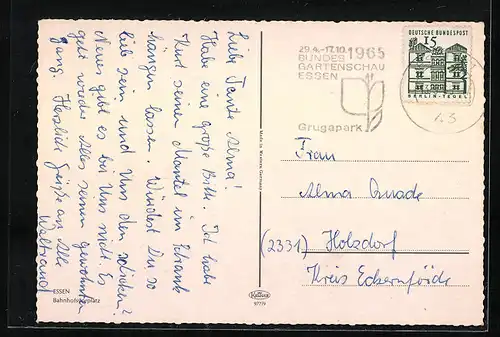 Liebe Tante Alma!
Habe eine große Bitte. Ich habe
Kurt seinen Mantel im Schrank
hängen lassen. Würdest Du so
lieb sein und Uns den schicken?
Neues gibt es bei Uns nicht. Es
geht wieder Alles seinen gewohnten
Gang. Herzliche Grüße an Alle
Waltraud
ESSEN
Bahnhofsvorplatz
Made in Western Germany
Kettling
97779
29.4.-17.10.1965
BUNDES
GARTENSCHAU
ESSEN
Grugapark
DEUTSCHE BUNDESPOST
15
BERLIN-TEGEL
43
Frau
Alma Quade
(2331) Holzdorf
Kreis Eckernförde